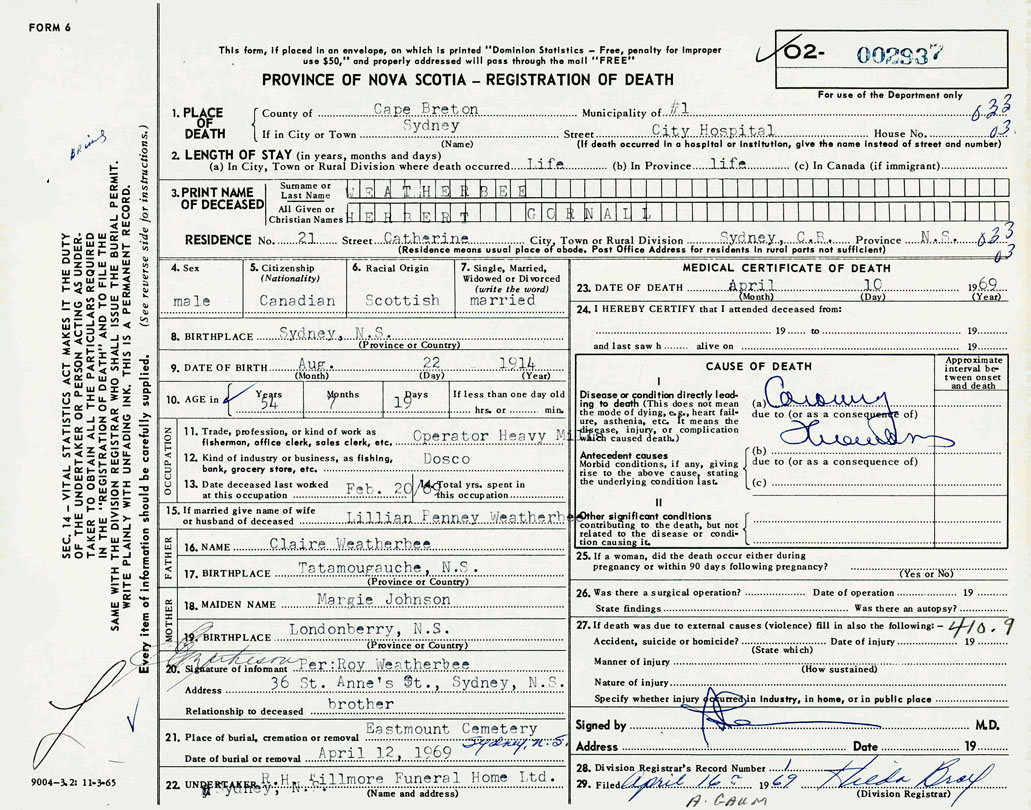 FORM 6
This form, if placed in an envelope, on which is printed "Dominion Statistics – Free, penalty for improper
use $50," and properly addressed will pass through the mail "FREE"
PROVINCE OF NOVA SCOTIA – REGISTRATION OF DEATH
O2- 002937
For use of the Department only
1. PLACE OF DEATH
County of Cape Breton Municipality of #1 033
If in City or Town Sydney Street City Hospital House No. 03.
(Name) (If death occurred in a hospital or institution, give the name instead of street and number)
2. LENGTH OF STAY (in years, months and days)
(a) In City, Town or Rural Division where death occurred Life (b) In Province life (c) In Canada (if immigrant)
3. PRINT NAME OF DECEASED
Surname or Last Name WEATHERBEE
All Given or Christian Names HERBERT GORNALL
RESIDENCE No. 21 Street Catherine City, Town or Rural Division Sydney, C.B. Province N.S. 033
(Residence means usual place of abode. Post Office Address for residents in rural parts not sufficient) 03
4. Sex
male
5. Citizenship (Nationality)
Canadian
6. Racial Origin
Scottish
7. Single, Married, Widowed or Divorced (write the word)
married
8. BIRTHPLACE Sydney, N.S.
(Province or Country)
9. DATE OF BIRTH Aug. 22 1914
(Month) (Day) (Year)
10. AGE in Years Months Days If less than one day old
54 7 19 hrs. or min.
OCCUPATION
11. Trade, profession, or kind of work as fisherman, office clerk, sales clerk, etc. Operator Heavy Mills
12. Kind of industry or business, as fishing, bank, grocery store, etc. Dosco
13. Date deceased last worked at this occupation Feb. 20/69
14. Total yrs. spent in this occupation
15. If married give name of wife or husband of deceased Lillian Penney Weatherbee
FATHER
16. NAME Claire Weatherbee
17. BIRTHPLACE Tatamougauche, N.S.
(Province or Country)
MOTHER
18. MAIDEN NAME Margie Johnson
19. BIRTHPLACE Londonberry, N.S.
(Province or Country)
20. Signature of informant Per:Roy Weatherbee
Address 36 St. Anne's St., Sydney, N.S.
Relationship to deceased brother
21. Place of burial, cremation or removal Eastmount Cemetery
Sydney, N.S.
Date of burial or removal April 12, 1969
22. UNDERTAKER R.H. Fillmore Funeral Home Ltd.
Sydney, N.S. (Name and address)
MEDICAL CERTIFICATE OF DEATH
23. DATE OF DEATH April 10 1969
(Month) (Day) (Year)
24. I HEREBY CERTIFY that I attended deceased from:
19 to 19
and last saw h alive on 19
CAUSE OF DEATH
Approximate interval between onset and death
I
Disease or condition directly leading to death (This does not mean the mode of dying, e.g., heart failure, asthenia, etc. It means the disease, injury, or complication which caused death.)
(a) Coronary
due to (or as a consequence of)
Thrombosis
Antecedent causes
Morbid conditions, if any, giving rise to the above cause, stating the underlying condition last.
(b)
due to (or as a consequence of)
(c)
II
Other significant conditions
contributing to the death, but not related to the disease or condition causing it.
25. If a woman, did the death occur either during pregnancy or within 90 days following pregnancy?
(Yes or No)
26. Was there a surgical operation? Date of operation 19
State findings Was there an autopsy?
27. If death was due to external causes (violence) fill in also the following: – 410.9
Accident, suicide or homicide? Date of injury 19
(State which)
Manner of injury
(How sustained)
Nature of injury
Specify whether injury occurred in Industry, in home, or in public place
Signed by M.D.
Address Date 19
28. Division Registrar's Record Number 1
29. Filed April 16 1969 Hilda Bray
(Division Registrar)
A. GAUM
SEC. 14 – VITAL STATISTICS ACT MAKES IT THE DUTY
OF THE UNDERTAKER OR PERSON ACTING AS UNDER-
TAKER TO OBTAIN ALL THE PARTICULARS REQUIRED
IN THE "REGISTRATION OF DEATH" AND TO FILE THE
SAME WITH THE DIVISION REGISTRAR WHO SHALL ISSUE THE BURIAL PERMIT.
WRITE PLAINLY WITH UNFADING INK. THIS IS A PERMANENT RECORD.
Every item of information should be carefully supplied. (See reverse side for instructions.)
9004–3.2: 11-3-65